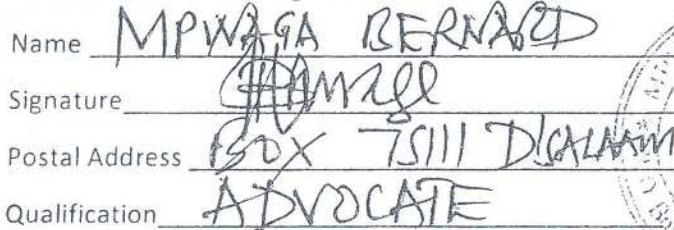 Name MPWAGA BERNARD
Signature
Postal Address BOX 75111 D'SALAAM
Qualification ADVOCATE